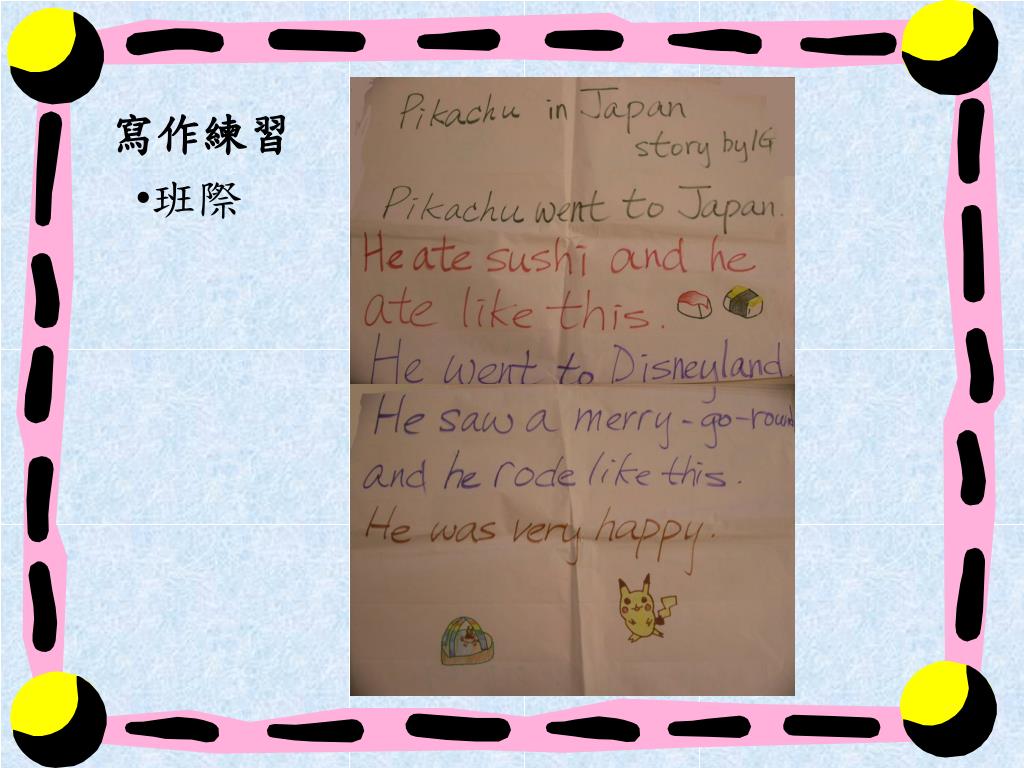 寫作練習
•班際
Pikachu in Japan
story by 1G
Pikachu went to Japan.
He ate sushi and he
ate like this.
He went to Disneyland.
He saw a merry-go-round
and he rode like this.
He was very happy.